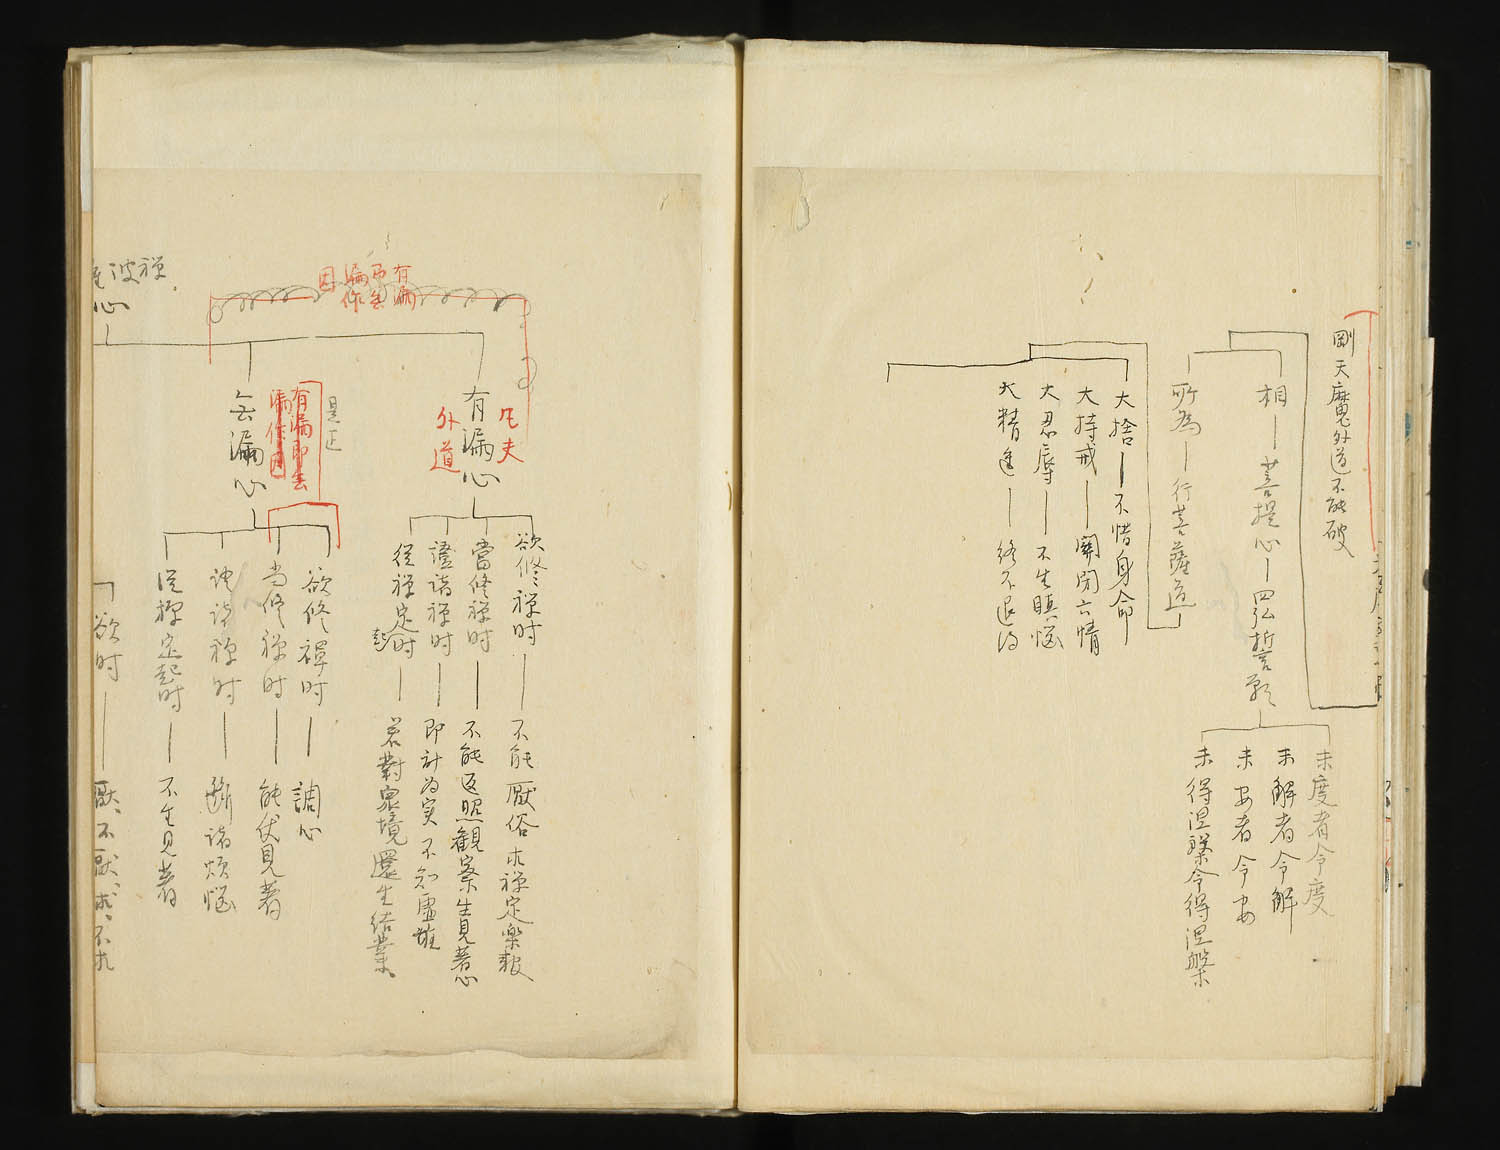 剛天魔外道不能破
相—菩提心—四弘誓願
未度者令度
未解者令解
未安者令安
未得涅槃令得涅槃
所為—行菩薩道
大捨—不惜身命
大持戒—關閉六情
大忍辱—不生瞋惱
大精進—終不退
有漏
漏作
因
凡夫
外道
有漏心
欲修禅時—不能厭俗求禅定樂報
當修禅时—不能返照観案生見著心
證諸禅时—即計为实不知虚誰
從禅定起时—若對衆境還生结業
是正
有漏即無
漏作因
無漏心
欲修禅时—調心
当修禅时—能伏見著
諸禅时—断諸煩惱
從禅定起时—不生見著
波禅
心
欲时—厭、不厭、求、不求